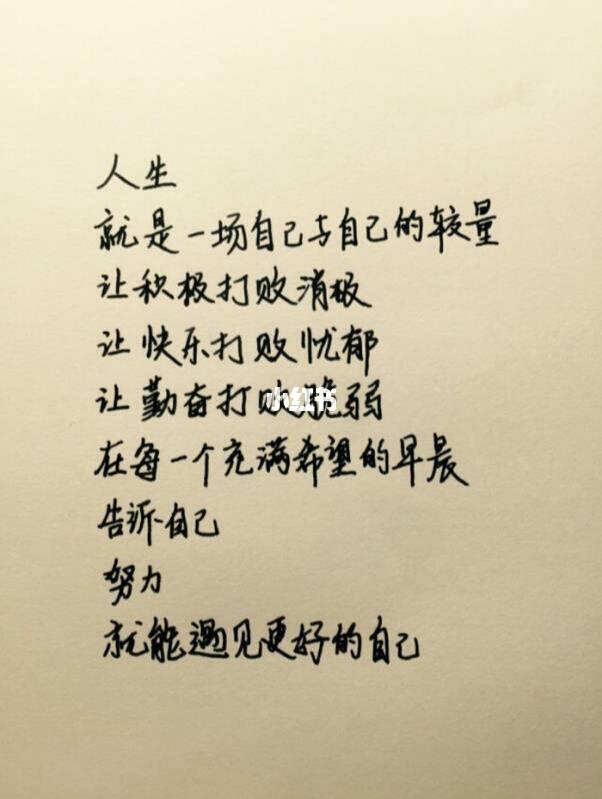 人生
就是一场自己与自己的较量
让积极打败消极
让快乐打败忧郁
让勤奋打败脆弱
小红书
在每一个充满希望的早晨
告诉自己
努力
就能遇见更好的自己